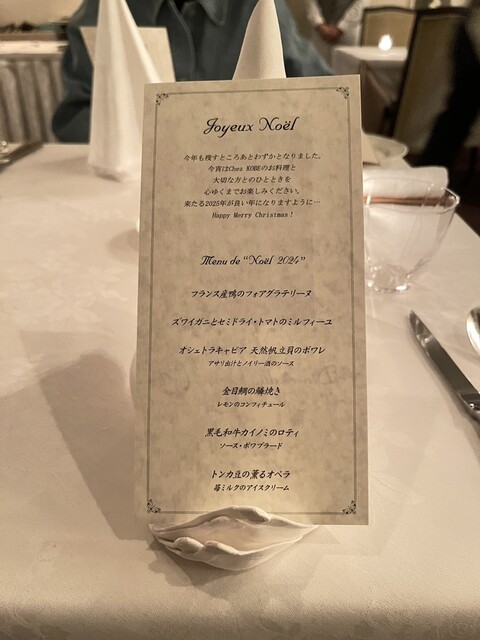 Joyeux Noël
今年も残すところあとわずかとなりました。
今宵はChez KOBEのお料理と
大切な方とのひとときを
心ゆくまでお楽しみください。
来たる2025年が良い年になりますように…
Happy Merry Christmas!
Menu de "Noël 2024"
フランス産鴨のフォアグラテリーヌ
ズワイガニとセミドライ・トマトのミルフィーユ
オシェトラキャビア 天然帆立貝のポワレ
アサリ出汁とノイリー酒のソース
金目鯛の鱗焼き
レモンのコンフィチュール
黒毛和牛カイノミのロティ
ソース・ポワブラード
トンカ豆の薫るオペラ
苺ミルクのアイスクリーム